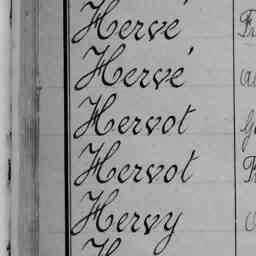 Hervé
Hervé
Hervot
Hervot
Hervy